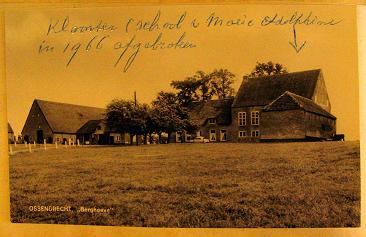 Klooster (school v Marie Adolphine
in 1966 afgebroken
OSSENDRECHT, „Berghoeve"